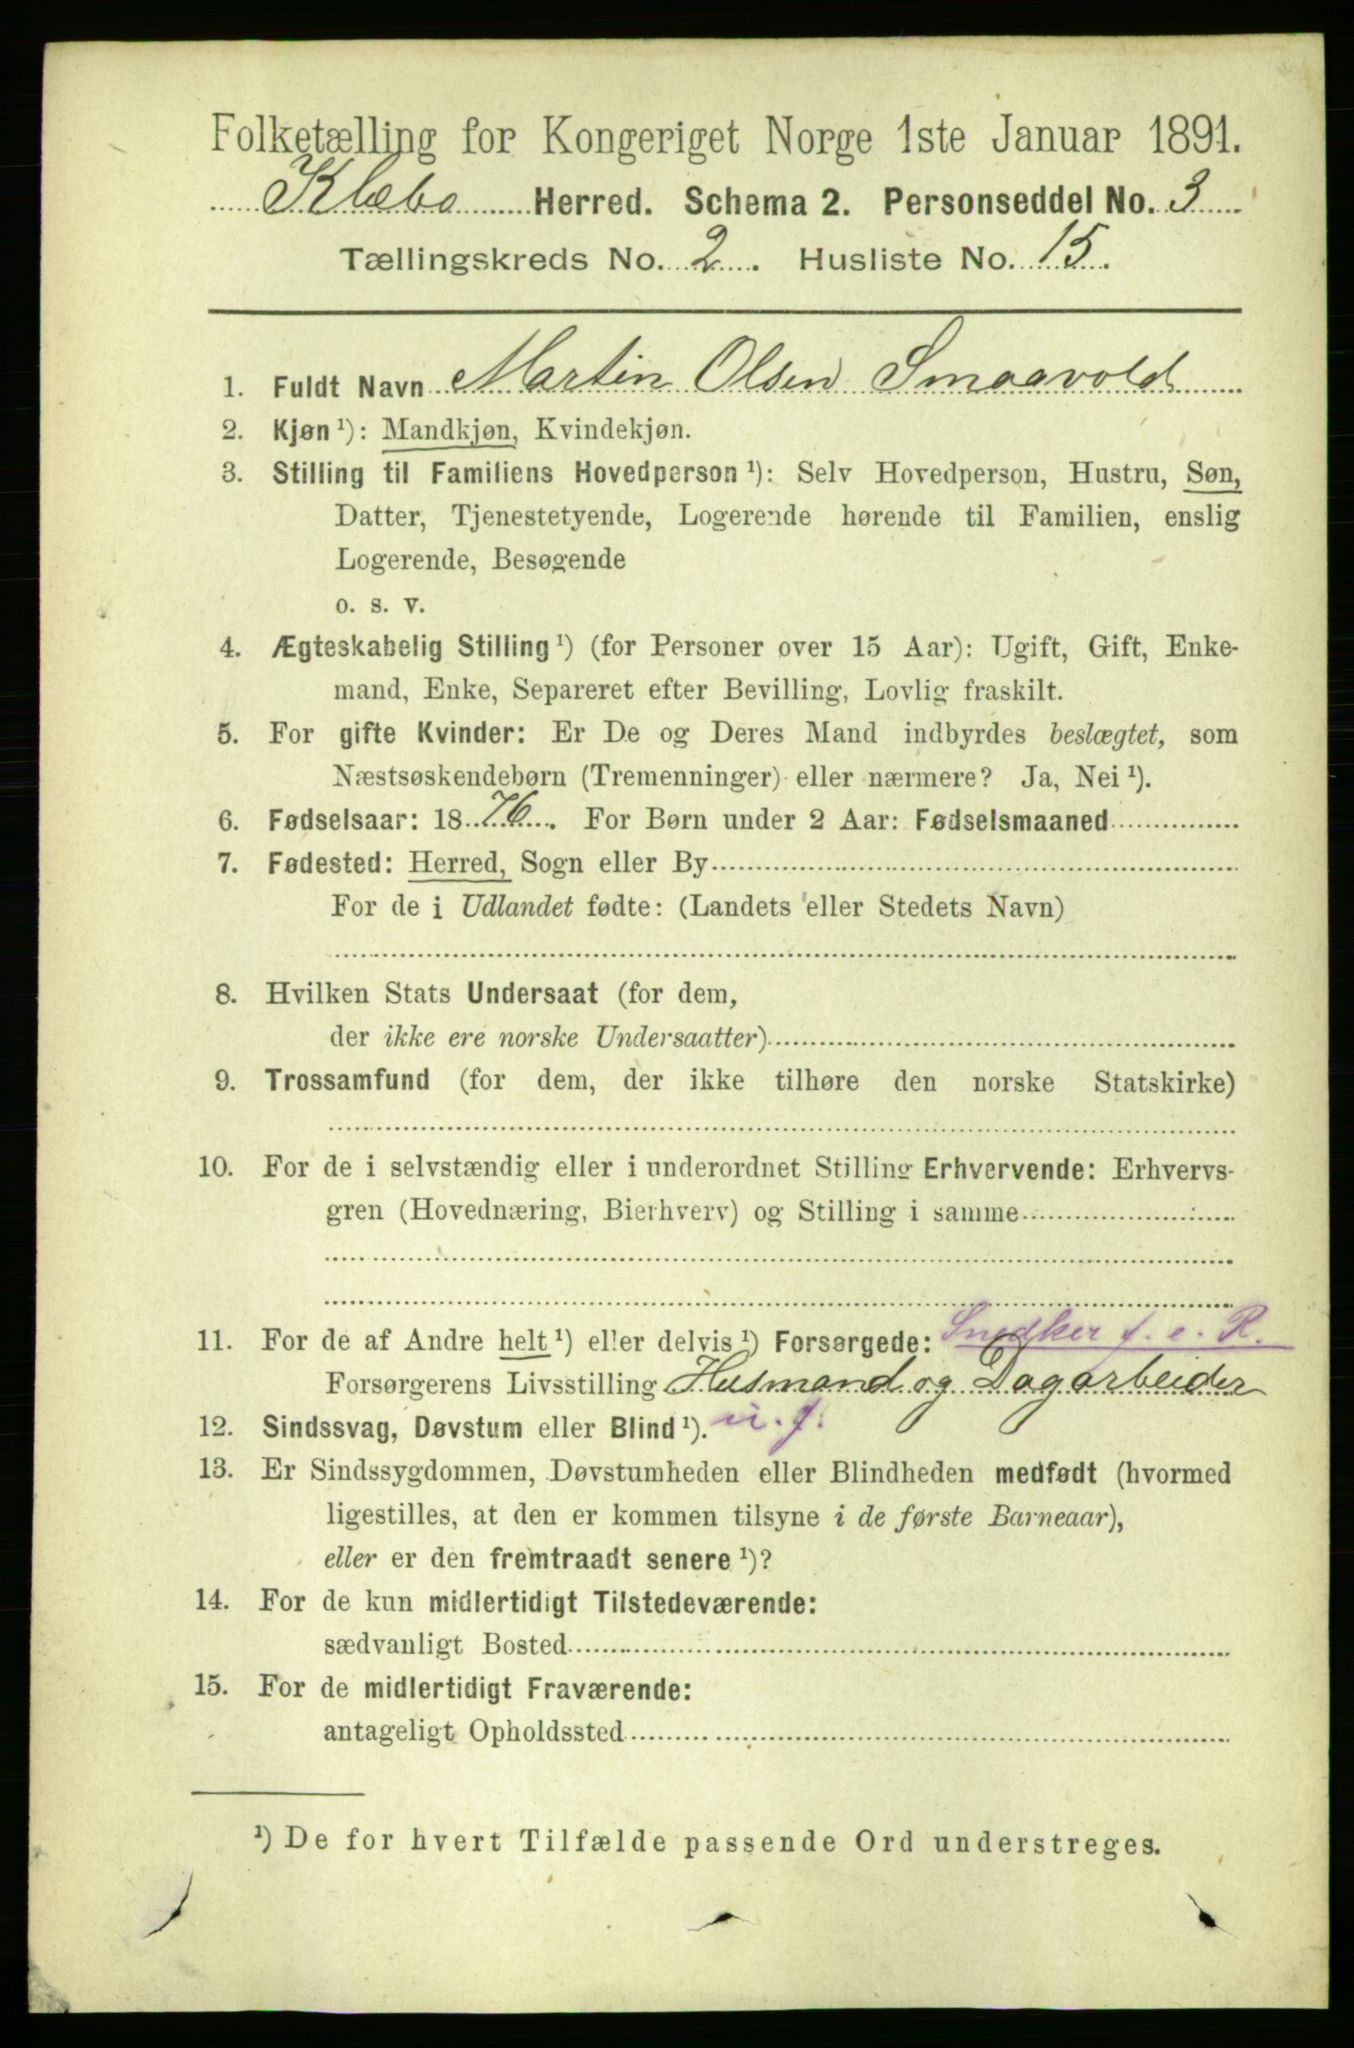 Folketælling for Kongeriget Norge 1ste Januar 1891.
Klæbo Herred. Schema 2. Personseddel No. 3
Tællingskreds No. 2. Husliste No. 15.
1. Fuldt Navn Martin Olsen Smaavold
2. Kjøn ¹): Mandkjøn, Kvindekjøn.
3. Stilling til Familiens Hovedperson ¹): Selv Hovedperson, Hustru, Søn,
Datter, Tjenestetyende, Logerende hørende til Familien, enslig
Logerende, Besøgende
o. s. v.
4. Ægteskabelig Stilling ¹) (for Personer over 15 Aar): Ugift, Gift, Enke-
mand, Enke, Separeret efter Bevilling, Lovlig fraskilt.
5. For gifte Kvinder: Er De og Deres Mand indbyrdes beslægtet, som
Næstsøskendebørn (Tremenninger) eller nærmere? Ja, Nei ¹).
6. Fødselsaar: 1876. For Børn under 2 Aar: Fødselsmaaned
7. Fødested: Herred, Sogn eller By
For de i Udlandet fødte: (Landets eller Stedets Navn)
8. Hvilken Stats Undersaat (for dem,
der ikke ere norske Undersaatter)
9. Trossamfund (for dem, der ikke tilhøre den norske Statskirke)
10. For de i selvstændig eller i underordnet Stilling Erhvervende: Erhvervs-
gren (Hovednæring, Bierhverv) og Stilling i samme
11. For de af Andre helt ¹) eller delvis ¹) Forsørgede: Snedker f. e. R.
Forsørgerens Livsstilling Husmand og Dagarbeider
12. Sindssvag, Døvstum eller Blind ¹). u. f.
13. Er Sindssygdommen, Døvstumheden eller Blindheden medfødt (hvormed
ligestilles, at den er kommen tilsyne i de første Barneaar),
eller er den fremtraadt senere ¹)?
14. For de kun midlertidigt Tilstedeværende:
sædvanligt Bosted
15. For de midlertidigt Fraværende:
antageligt Opholdssted
¹) De for hvert Tilfælde passende Ord understreges.